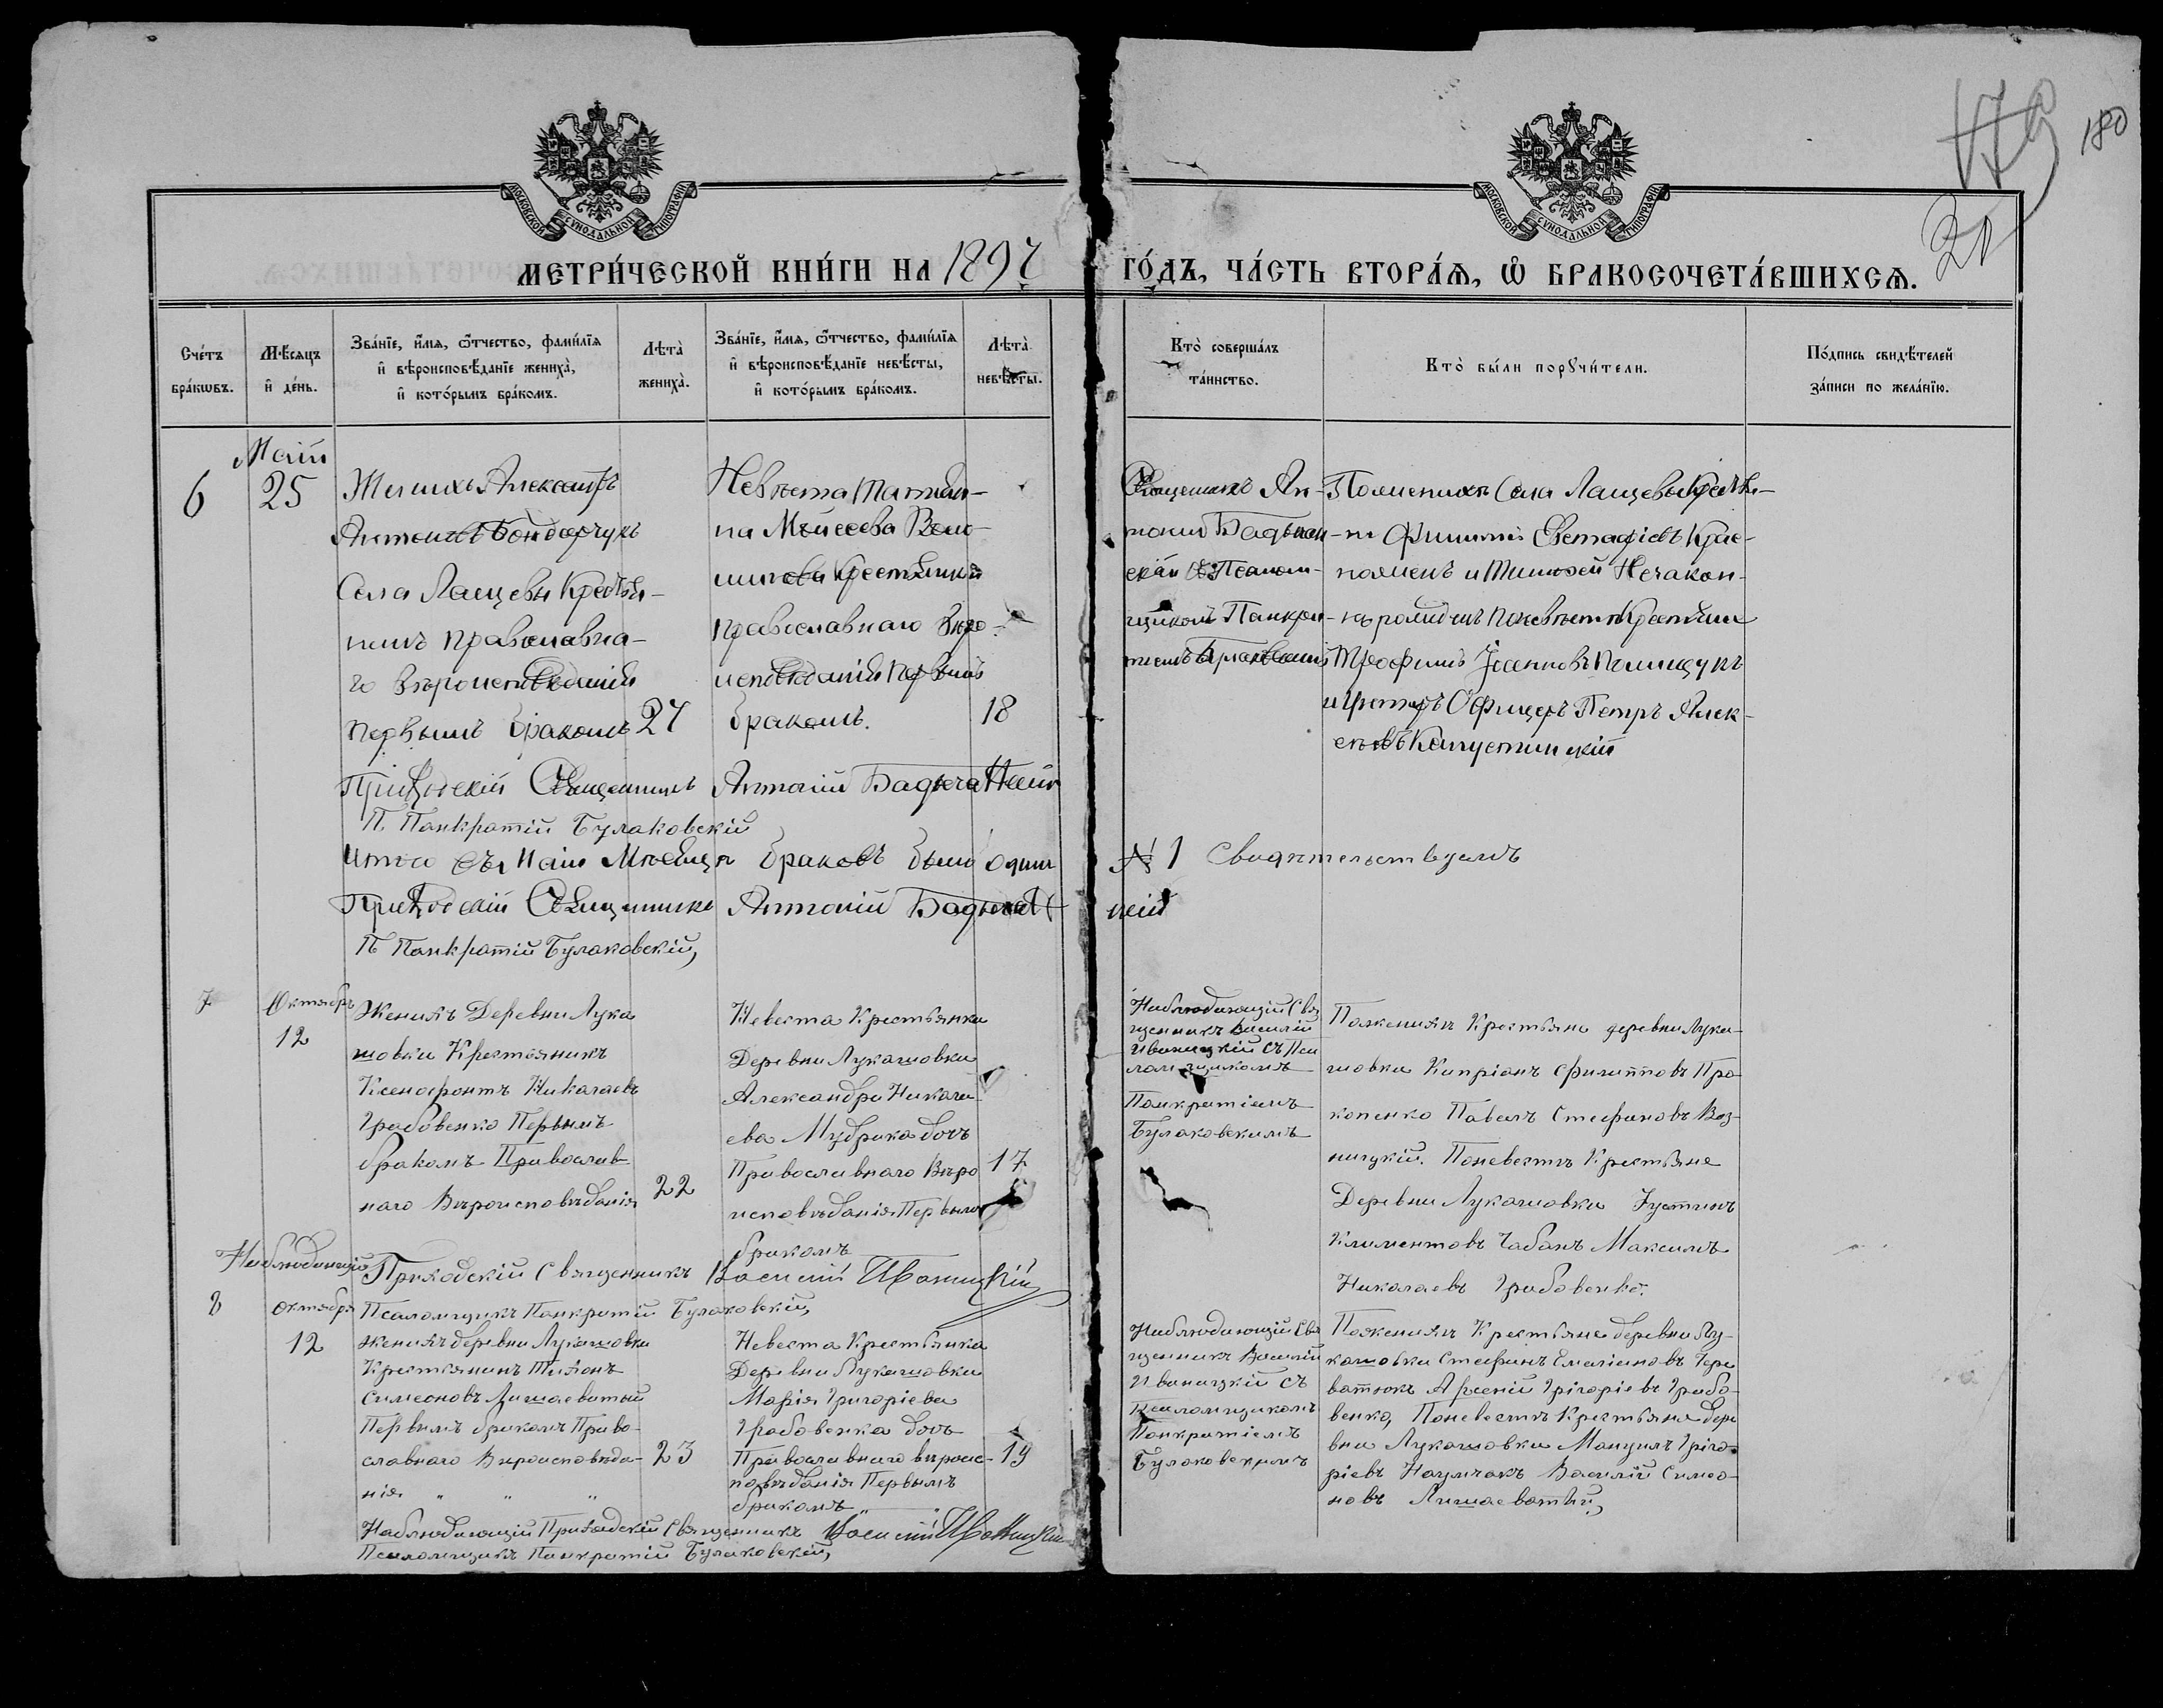 179
180
31
МОСКОВСКОЙ СѴНОДАЛЬНОЙ ТИПОГРАФІИ
МОСКОВСКОЙ СѴНОДАЛЬНОЙ ТИПОГРАФІИ
МЕТРИ́ЧЕСКОЙ КНИ́ГИ НА 1897 ГО́ДЪ, ЧА́СТЬ ВТОРА́Я, Ѡ҆ БРАКОСОЧЕТА́ВШИХСѦ.
Сче́тъ
бра́кѡвъ.
Мѣ́сѧцъ
и҆ де́нь.
Зва́нїе, и҆́мѧ, ѻ҆́тчество, фами́лїѧ
и҆ вѣроисповѣ́данїе жениха̀,
и҆ кото́рымъ бра́комъ.
Лѣта̀
жениха̀.
Зва́нїе, и҆́мѧ, ѻ҆́тчество, фами́лїѧ
и҆ вѣроисповѣ́данїе невѣ́сты,
и҆ кото́рымъ бра́комъ.
Лѣта̀
невѣ́сты.
Кто̀ соверша́лъ
та́инство.
Кто̀ бы́ли порꙋчи́тели.
По́дпись свидѣ́телей
за́писи по жела́нїю.
6
Маій
25
Женихъ Александръ
Антоновъ Бондарчукъ
Села Лащевы Крестья-
нинъ православна-
го Вѣроисповѣданія
первымъ бракомъ
27
Невѣста Татія-
на Моисеева
Крестьянка
православнаго Вѣро-
исповѣданія первымъ
бракомъ.
18
Священникъ Ан-
тоній
съ Псалом-
щикомъ Панкра-
тіемъ
Поженихѣ Села Лащевы Крестья-
не Филиппъ Евстафіевъ Крас-
ноженъ и Тимофей
поневѣстѣ Крестьяне
Трофимъ Іоанновъ Полищукъ
и Унтеръ Офицеръ Петръ Алек-
Капустинскій
Приходскій Священникъ Антоній
П. Панкратій Булаковскій
Итого съ Маіи Мѣсяцѣ браковъ было одинъ № 1 Свидѣтельствуемъ
Приходскій Священникъ Антоній
П. Панкратій Булаковскій,
7
Октябрь
12
Женихъ Деревни Лука
шовки Крестьянинъ
Ксенофонтъ Николаевъ
Грабовенко Первымъ
бракомъ Православ
наго Вѣроисповѣданія
22
Невеста Крестьянка
Деревни Лукашовки
Александра Никола-
ева Мудрика дочь
Православнаго Вѣро
исповѣданія Первымъ
бракомъ
17
Наблюдающій Свя
щенникъ Василій
Иваницкій съ Пса
ломщикомъ
Панкратіемъ
Булаковскимъ
Поженихѣ Крестьяне деревни Лука-
шовки Кипріанъ Филипповъ Про
копенко Павелъ Стефановъ Воз-
ницкій. Поневестѣ Крестьяне
Деревни Лукашовки Іустинъ
Климентовъ Чабанъ Максимъ
Николаевъ Грабовенко.
Наблюдающій Приходскій Священникъ Василій Иваницкій
Псаломщикъ Панкратій Булаковскій,
8
октября
12
женихъ деревни Лукашовки
Крестьянинъ Тихонъ
Симеоновъ Лишаеватый
Первымъ бракомъ Право-
славнаго Вѣроисповѣда-
нія " " "
23
Невеста Крестьянка
Деревни Лукашовки
Марія Григоріева
Грабовенка дочь
Православнаго вѣроис-
повѣданія Первымъ
бракомъ
19
Наблюдающій Свя
щенникъ Василій
Иваницкій съ
Псаломщикомъ
Панкратіемъ
Булаковскимъ
Поженихѣ Крестьяне деревни Лу-
кашовки Стефанъ Емеліановъ Чере
ватюкъ Арсеній Григоріевъ Грабо-
венко, Поневестѣ Крестьяне дере
вни Лукашовки Мануилъ Григо-
ріевъ Наумчакъ Василій Симео-
новъ Лишаеватый,
Наблюдающій Приходскій Священникъ Василій Иваницкій
Псаломщикъ Панкратій Булаковскій,